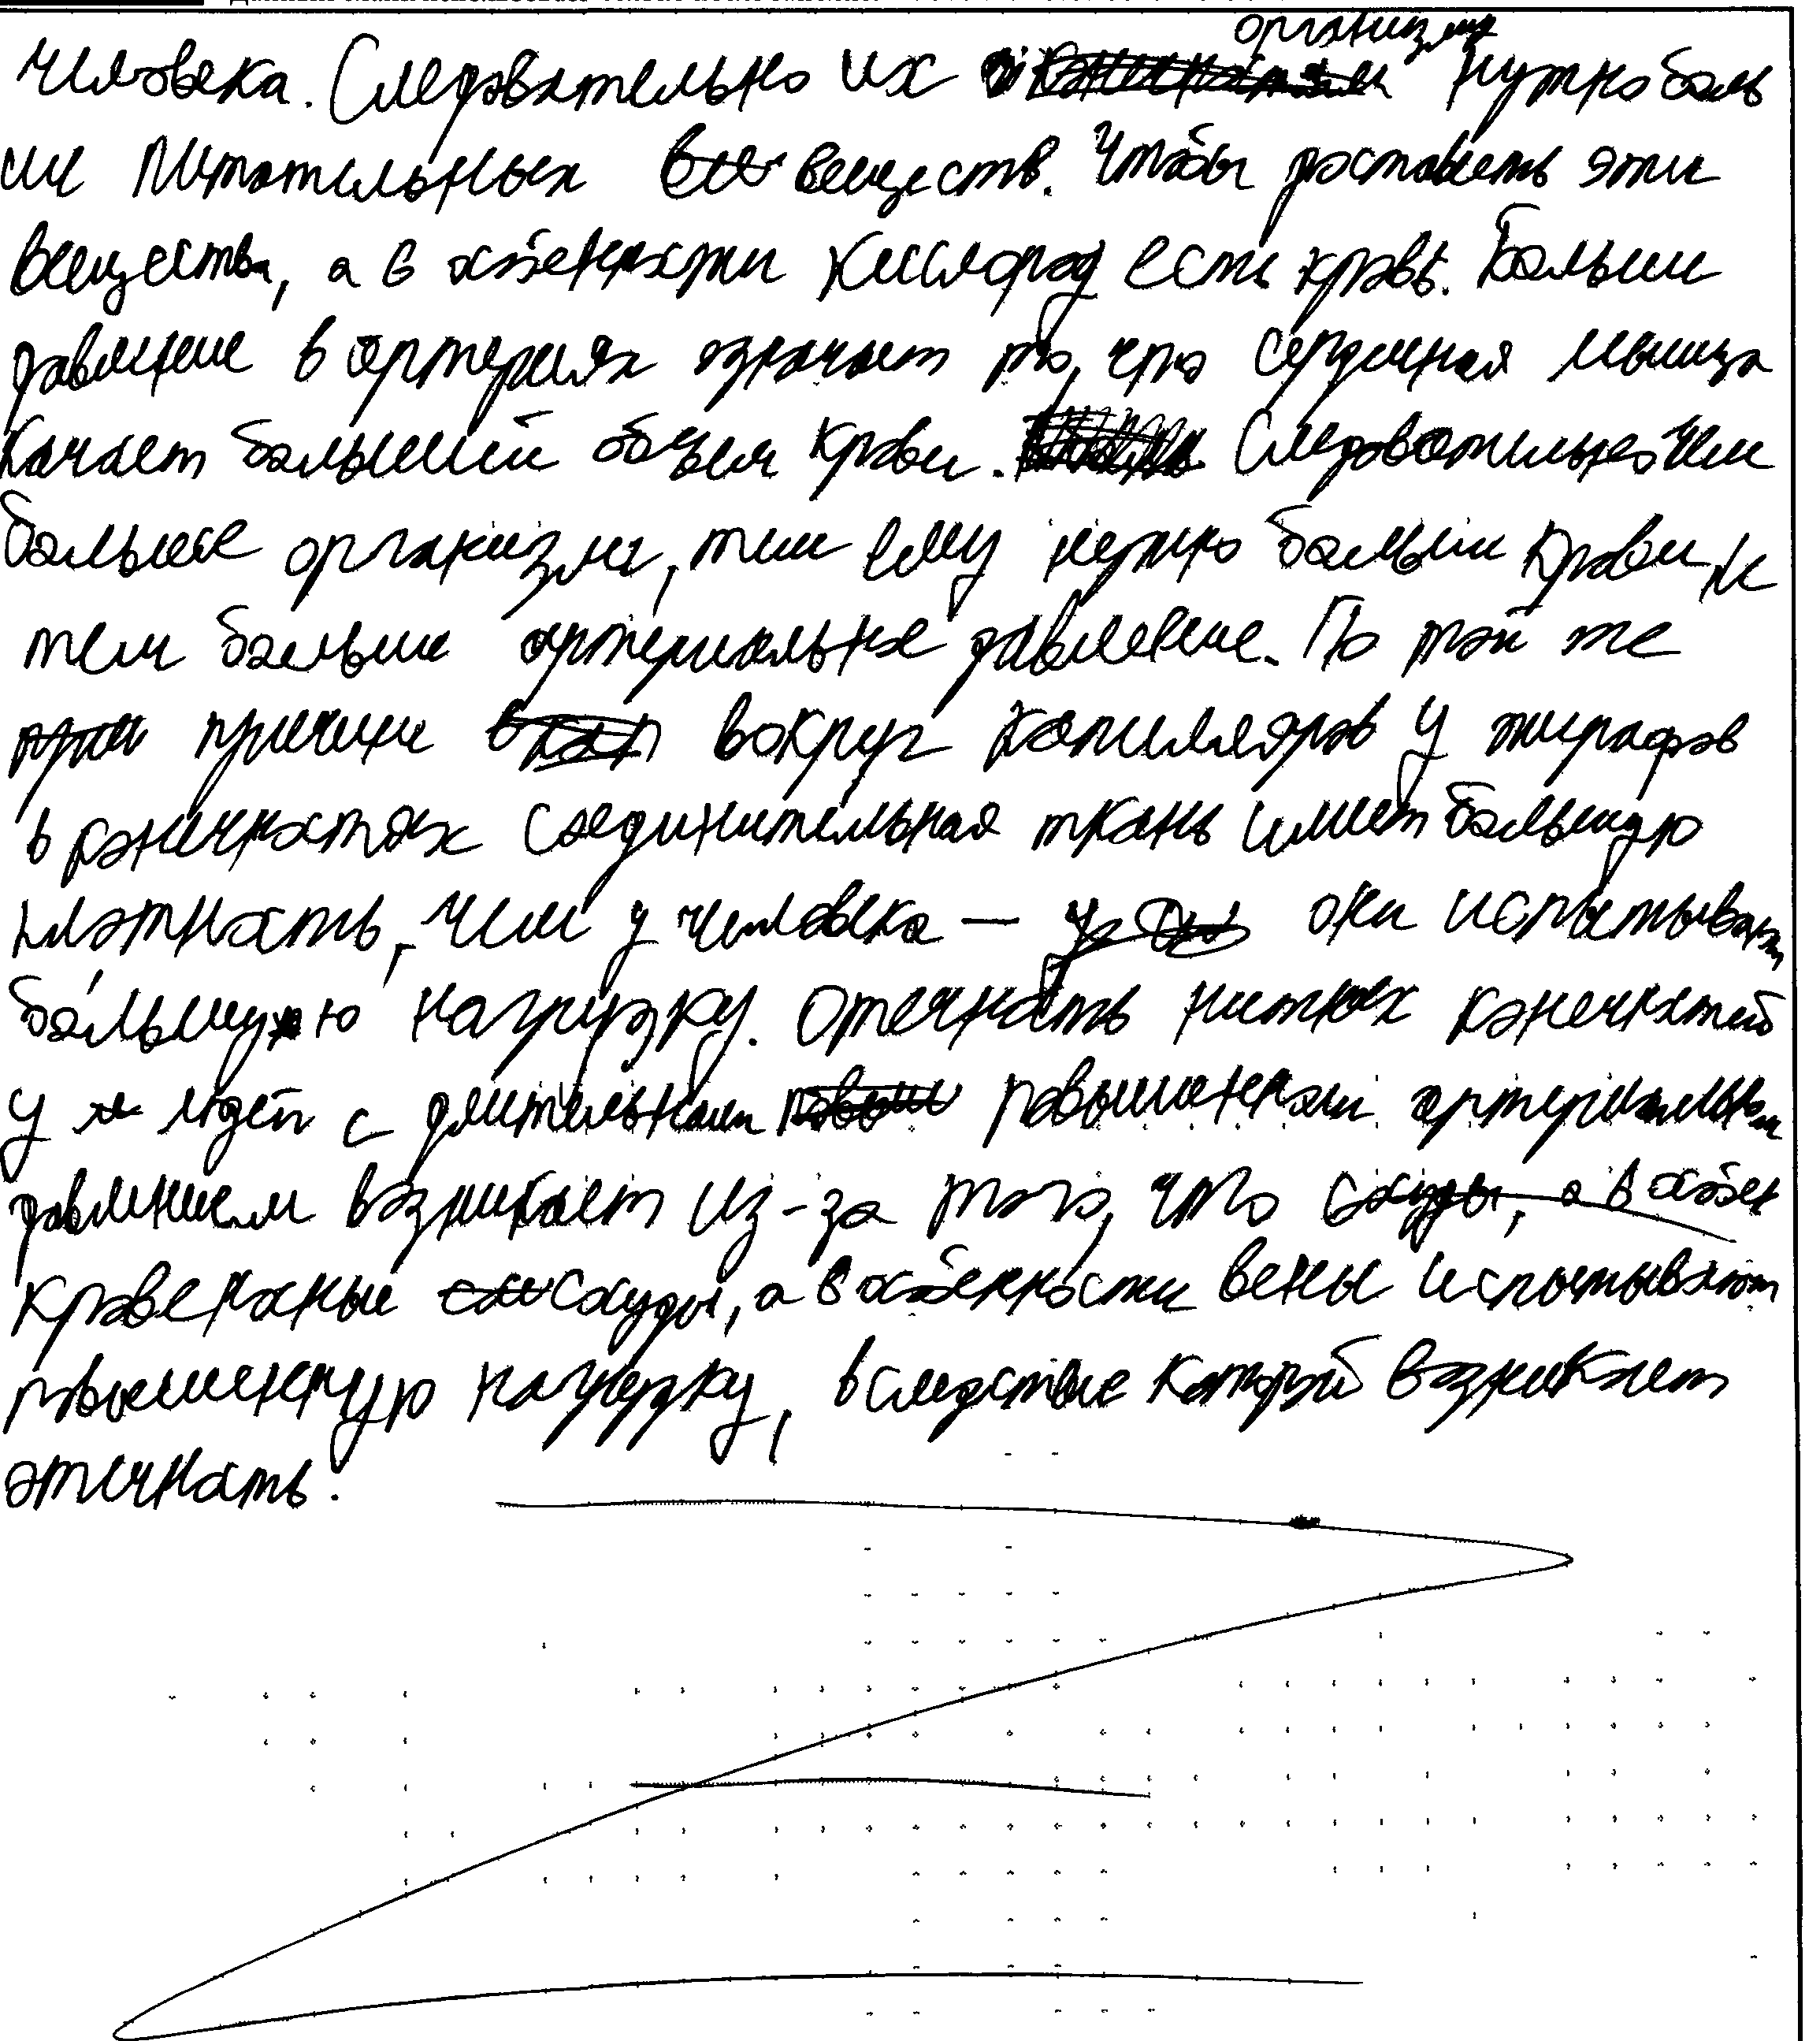 человека. Следовательно их организму нужно боль
ше питательных веществ. Чтобы доставить эти
вещества, а в особенности кислород есть кровь. Больше
давление в артериях означает то, что сердечная мышца
качает больший объем крови. Следовательно чем
больше организм, тем ему нужно больше крови, и
тем больше артериальное давление. По той же
причине вокруг капилляров у жирафов
в конечностях соединительная ткань имеет большую
плотность, чем у человека — они испытывают
бо́льшую нагрузку. Отечность нижних конечностей
у людей с длительным повышенным артериальным
давлением возникает из-за того, что
кровеносные сосуды, а в особенности вены испытывают
повышенную нагрузку, вследствие которой возникает
отечность.